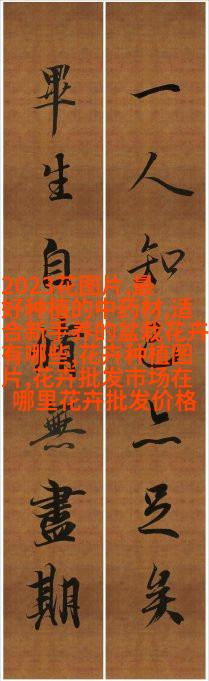 一人知亦足矣
畢生自無盡期
2023花图片,最
好种植的中药材,适
合新手养的盆栽花卉
有哪些,花卉种植图
片,花卉批发市场在
哪里花卉批发价格